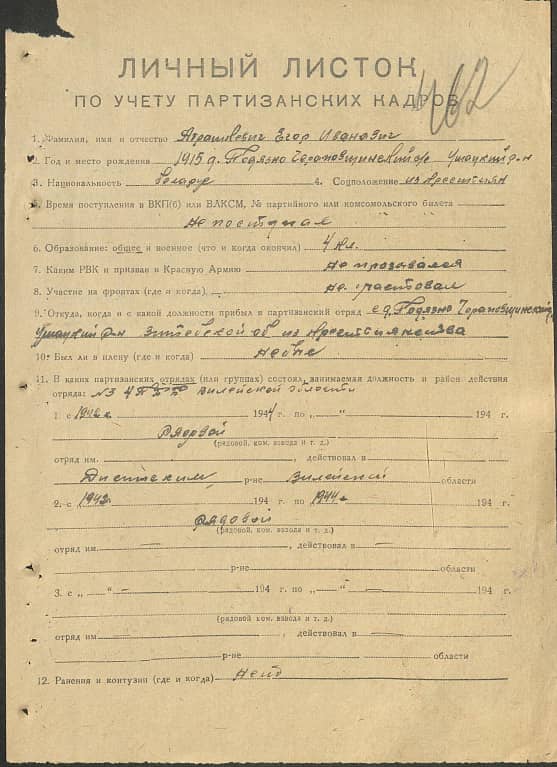 ЛИЧНЫЙ ЛИСТОК
ПО УЧЕТУ ПАРТИЗАНСКИХ КАДРОВ
462
1. Фамилия, имя и отчество Абрамович Егор Иванович
2. Год и место рождения 1915 д.
3. Национальность беларус 4. Соцположение из крестьян
5. Время поступления в ВКП(б) или ВЛКСМ, № партийного или комсомольского билета
не поступал
6. Образование: общее и военное (что и когда окончил) 4 кл.
7. Каким РВК и призван в Красную Армию не призывался
8. Участие на фронтах (где и когда) не участвовал
9. Откуда, когда и с какой должности прибыл в партизанский отряд с д.
10. Был ли в плену (где и когда) не был
11. В каких партизанских отрядах (или группах) состоял, занимаемая должность и район действия
отряда: №3 4 Вилейской области
1. с 1942 г. 1944 г. по „ — “ 194 г.
рядовой
(рядовой, ком. взвода и т. д.)
отряд им. , действовал в
р-не Вилейской области
2. с 1942 194 г. по 1944 г 194 г.
рядовой
(рядовой, ком. взвода и т. д.)
отряд им. , действовал в
р-не области
3. с „ “ 194 г. по „ “ 194 г.
(рядовой, ком. взвода и т. д.)
отряд им. , действовал в
р-не области
12. Ранения и контузии (где и когда) нет